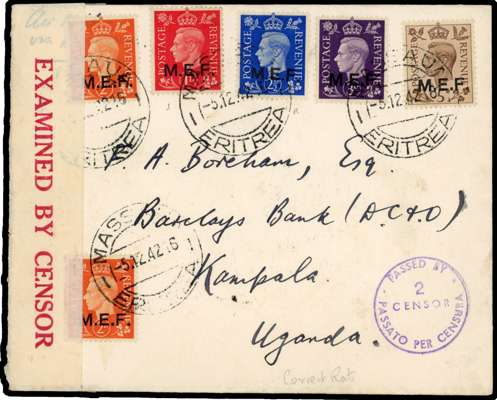 Air
via
EXAMINED BY CENSOR
POSTAGE REVENUE
POSTAGE REVENUE
POSTAGE REVENUE
POSTAGE REVENUE
M.E.F.
M.E.F.
M.E.F.
M.E.F.
M.E.F.
ERITREA
-5.12.42
ERITREA
-5.12.42
ERITREA
A. Boreham, Esq.
Barclays Bank (D.C&O)
Kampala
Uganda.
MASS
-5.12.42.16
M.E.F.
PASSED BY
2
CENSOR
PASSATO PER CENSURA
Correct Rate